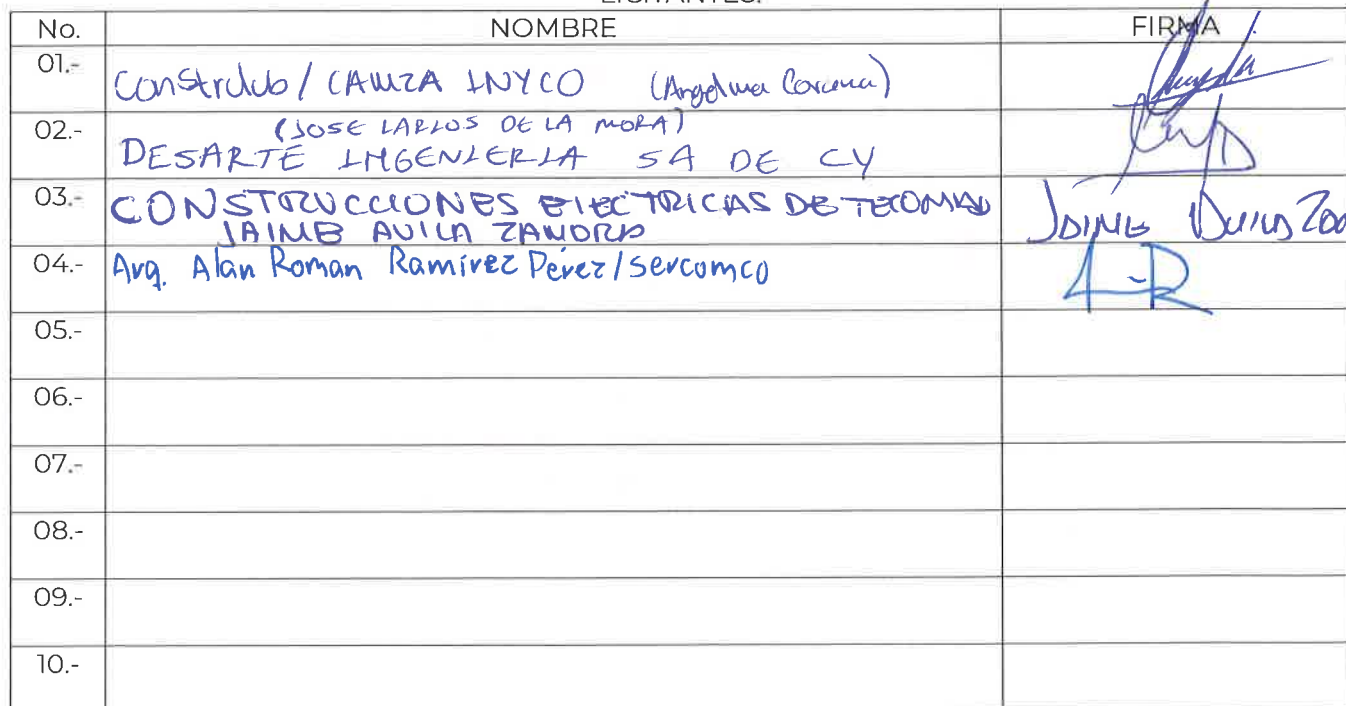 LICITANTES.
No. NOMBRE FIRMA
01.- Constrclub / CAMZA INYCO (Angelina Corona)
02.- (JOSE CARLOS DE LA MORA)
DESARTE INGENIERIA SA DE CV
03.- CONSTRUCCIONES ELECTRICAS DE TECOMAN
JAIME AVILA ZAMORA JAIME AVILA
04.- Arq. Alan Roman Ramírez Pérez/sercomco
05.-
06.-
07.-
08.-
09.-
10.-